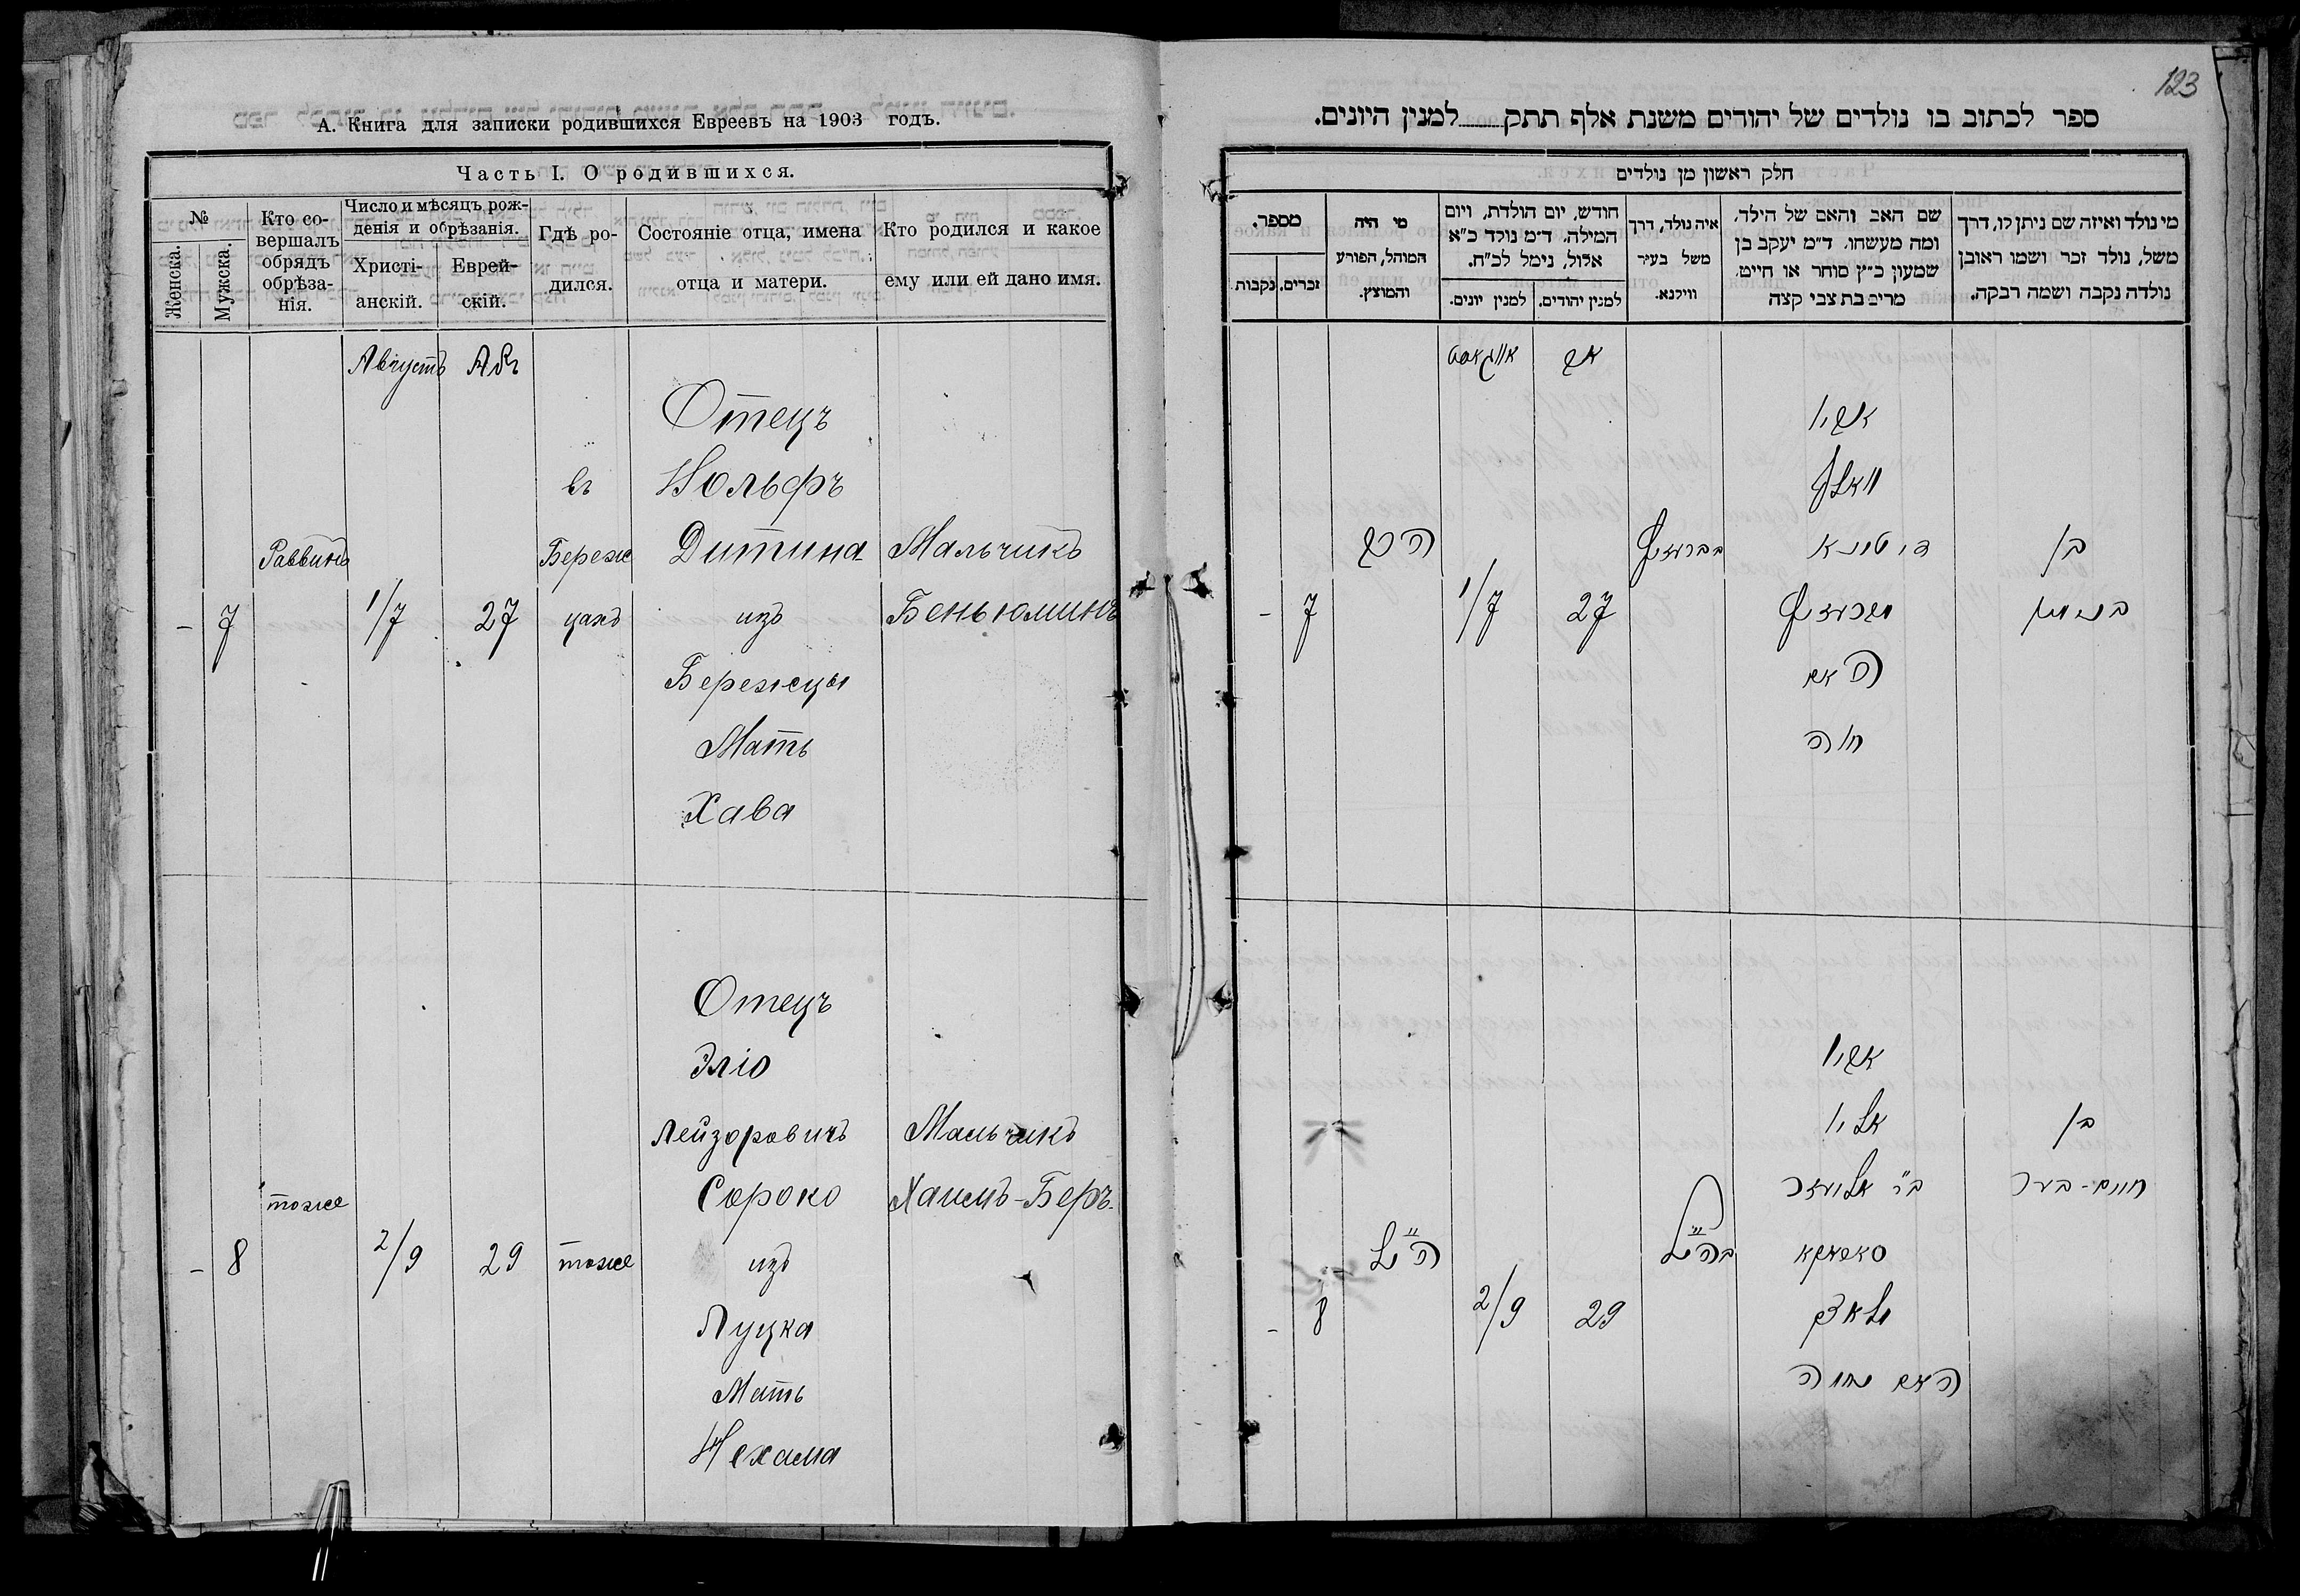 А. Книга для записки родившихся Евреевъ на 1903 годъ.
Часть I. О родившихся.
№
Женска.
Мужска.
Кто со-
вершалъ
обрядъ
обрѣза-
нія.
Число и мѣсяцъ рож-
денія и обрѣзанія.
Христі-
анскій.
Еврей-
скій.
Гдѣ ро-
дился.
Состояніе отца, имена
отца и матери.
Кто родился и какое
ему или ей дано имя.
Августъ Авъ
Отецъ
въ Вольфъ
Раввинъ Береж Дитина Мальчикъ
- 7 1/7 27 цахъ изъ Беньюминъ
Бережцы
Мать
Хава
Отецъ
Эліо
Лейзоровичъ Мальчикъ
тоже Сороко Хаимъ-Беръ.
- 8 2/9 29 тоже изъ
Луцка
Мать
Нехама
123
ספר לכתוב בו נולדים של יהודים משנת אלף תתק למנין היונים.
חלק ראשון מן נולדים
מי נולד ואיזה שם ניתן לו, דרך
משל, נולד זכר ושמו ראובן
נולדה נקבה ושמה רבקה.
שם האב והאם של הילד,
ומה מעשהו. ד״מ יעקב בן
שמעון כ״ץ סוחר או חייט,
מרים בת צבי קצה
איה נולד, דרך
משל בעיר
ווילנא.
חודש, יום הולדת, ויום
המילה. ד״מ נולד כ״א
אלול, נימל לכ״ח.
למנין יהודים.
למנין יונים.
מי היה
המוהל, הפורע
והמוצץ.
מספר.
זכרים.
נקבות.
אב אויגאסט
אביו
וואלף
בן דיטינא הרב
בנימין 27 1/7 7 -
האם
חוה
אביו
בן אליו
חיים-בער ב״ר אליעזר
סאראקא בהנ״ל הנ״ל
29 2/9 8 -
האם נחמה